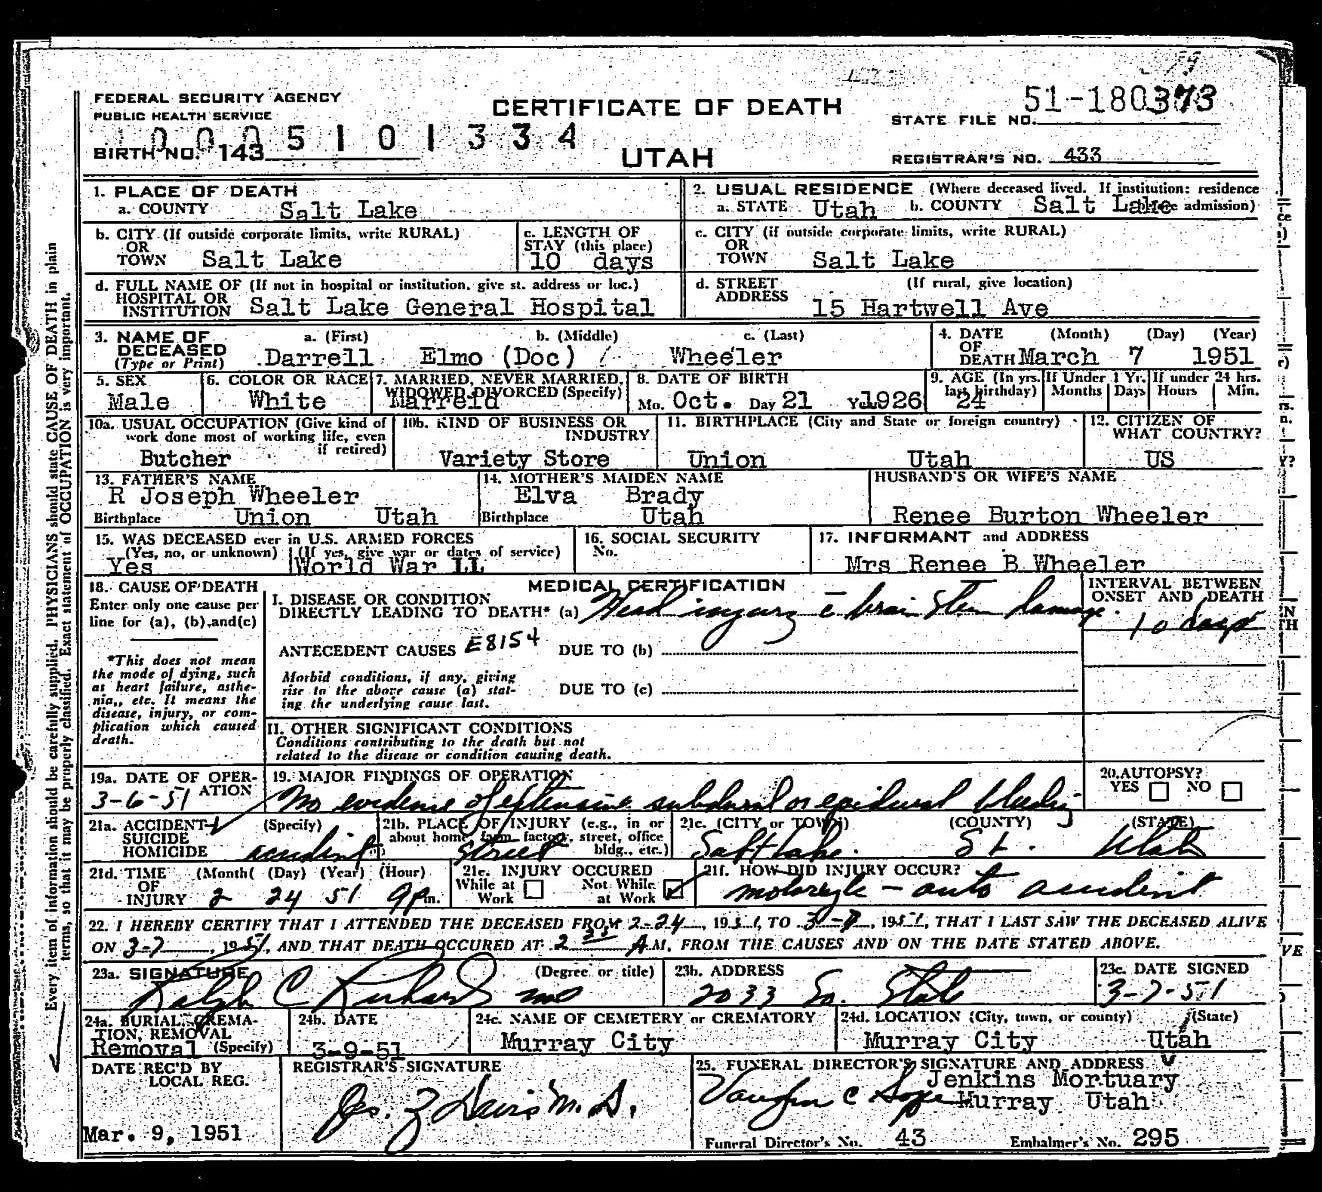 FEDERAL SECURITY AGENCY
PUBLIC HEALTH SERVICE
CERTIFICATE OF DEATH
51-180373
STATE FILE NO.
0005101334
BIRTH NO. 143
UTAH
REGISTRAR'S NO. 433
1. PLACE OF DEATH
a. COUNTY Salt Lake
2. USUAL RESIDENCE (Where deceased lived. If institution: residence
a. STATE Utah b. COUNTY Salt Lake admission)
b. CITY (If outside corporate limits, write RURAL)
OR
TOWN Salt Lake
c. LENGTH OF
STAY (this place)
10 days
c. CITY (if outside corporate limits, write RURAL)
OR
TOWN Salt Lake
d. FULL NAME OF (If not in hospital or institution, give st. address or loc.)
HOSPITAL OR
INSTITUTION Salt Lake General Hospital
d. STREET (If rural, give location)
ADDRESS 15 Hartwell Ave
3. NAME OF DECEASED (Type or Print)
a. (First) b. (Middle) c. (Last)
Darrell Elmo (Doc) Wheeler
4. DATE OF DEATH (Month) (Day) (Year)
March 7 1951
5. SEX
Male
6. COLOR OR RACE
White
7. MARRIED, NEVER MARRIED, WIDOWED, DIVORCED (Specify)
Marreid
8. DATE OF BIRTH
Mo. Oct. Day 21 Yr. 1926
9. AGE (In yrs. last birthday) 24
If Under 1 Yr. Months Days
If under 24 hrs. Hours Min.
10a. USUAL OCCUPATION (Give kind of work done most of working life, even if retired)
Butcher
10b. KIND OF BUSINESS OR INDUSTRY
Variety Store
11. BIRTHPLACE (City and State or foreign country)
Union Utah
12. CITIZEN OF WHAT COUNTRY?
US
13. FATHER'S NAME
R Joseph Wheeler
Birthplace Union Utah
14. MOTHER'S MAIDEN NAME
Elva Brady
Birthplace Utah
HUSBAND'S OR WIFE'S NAME
Renee Burton Wheeler
15. WAS DECEASED ever in U.S. ARMED FORCES
(Yes, no, or unknown) (If yes, give war or dates of service)
Yes World War LL
16. SOCIAL SECURITY
No.
17. INFORMANT and ADDRESS
Mrs Renee B Wheeler
18. CAUSE OF DEATH
Enter only one cause per
line for (a), (b), and (c)
*This does not mean
the mode of dying, such
as heart failure, asthe-
nia,, etc. It means the
disease, injury, or com-
plication which caused
death.
MEDICAL CERTIFICATION
I. DISEASE OR CONDITION
DIRECTLY LEADING TO DEATH* (a) Head injury c̄ brain stem damage.
INTERVAL BETWEEN
ONSET AND DEATH
10 days
ANTECEDENT CAUSES E8154 DUE TO (b)
Morbid conditions, if any, giving
rise to the above cause (a) stat-
ing the underlying cause last.
DUE TO (c)
II. OTHER SIGNIFICANT CONDITIONS
Conditions contributing to the death but not
related to the disease or condition causing death.
19a. DATE OF OPER-
ATION
3-6-51
19. MAJOR FINDINGS OF OPERATION
No evidence of extensive subdural or epidural bleeding
20. AUTOPSY?
YES NO
21a. ACCIDENT (Specify)
SUICIDE
HOMICIDE accident
21b. PLACE OF INJURY (e.g., in or
about home, farm, factory, street, office
bldg., etc.)
Street
21c. (CITY or TOWN) (COUNTY) (STATE)
Salt Lake. S L. Utah
21d. TIME OF INJURY (Month) (Day) (Year) (Hour)
2 24 51 9 p m.
21e. INJURY OCCURED
While at Work Not While at Work
21f. HOW DID INJURY OCCUR?
motorcycle - auto accident
22. I HEREBY CERTIFY THAT I ATTENDED THE DECEASED FROM 2-24, 1951, TO 3-7, 1951, THAT I LAST SAW THE DECEASED ALIVE
ON 3-7, 1951, AND THAT DEATH OCCURED AT 2 A M, FROM THE CAUSES AND ON THE DATE STATED ABOVE.
23a. SIGNATURE (Degree or title)
Ralph C Richards MD
23b. ADDRESS
2033 So. State
23c. DATE SIGNED
3-7-51
24a. BURIAL, CREMA-
TION, REMOVAL
Removal (Specify)
24b. DATE
3-9-51
24c. NAME OF CEMETERY or CREMATORY
Murray City
24d. LOCATION (City, town, or county) (State)
Murray City Utah
DATE REC'D BY
LOCAL REG.
Mar. 9, 1951
REGISTRAR'S SIGNATURE
25. FUNERAL DIRECTOR'S SIGNATURE AND ADDRESS
Jenkins Mortuary
Murray Utah
Funeral Director's No. 43 Embalmer's No. 295
Every item of information should be carefully supplied. PHYSICIANS should state CAUSE OF DEATH in plain
terms, so that it may be properly classified. Exact statement of OCCUPATION is very important.